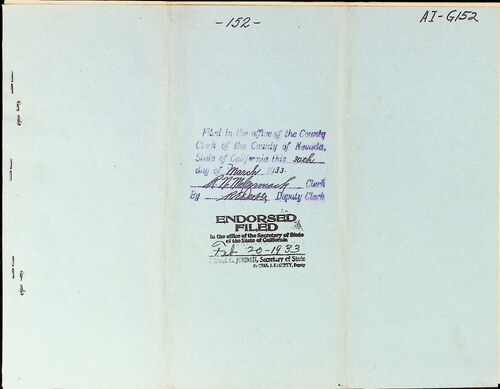 -152-
AI-G152
Filed in the office of the County
Clerk of the County of Nevada,
State of California this 30th
day of March 1933
R. N. McCormack Clerk
By Deputy Clerk
ENDORSED
FILED
in the office of the Secretary of State
of the State of California
Feb 20-1933
FRANK C. JORDAN, Secretary of State
By CHAS. J. HAGERTY, Deputy